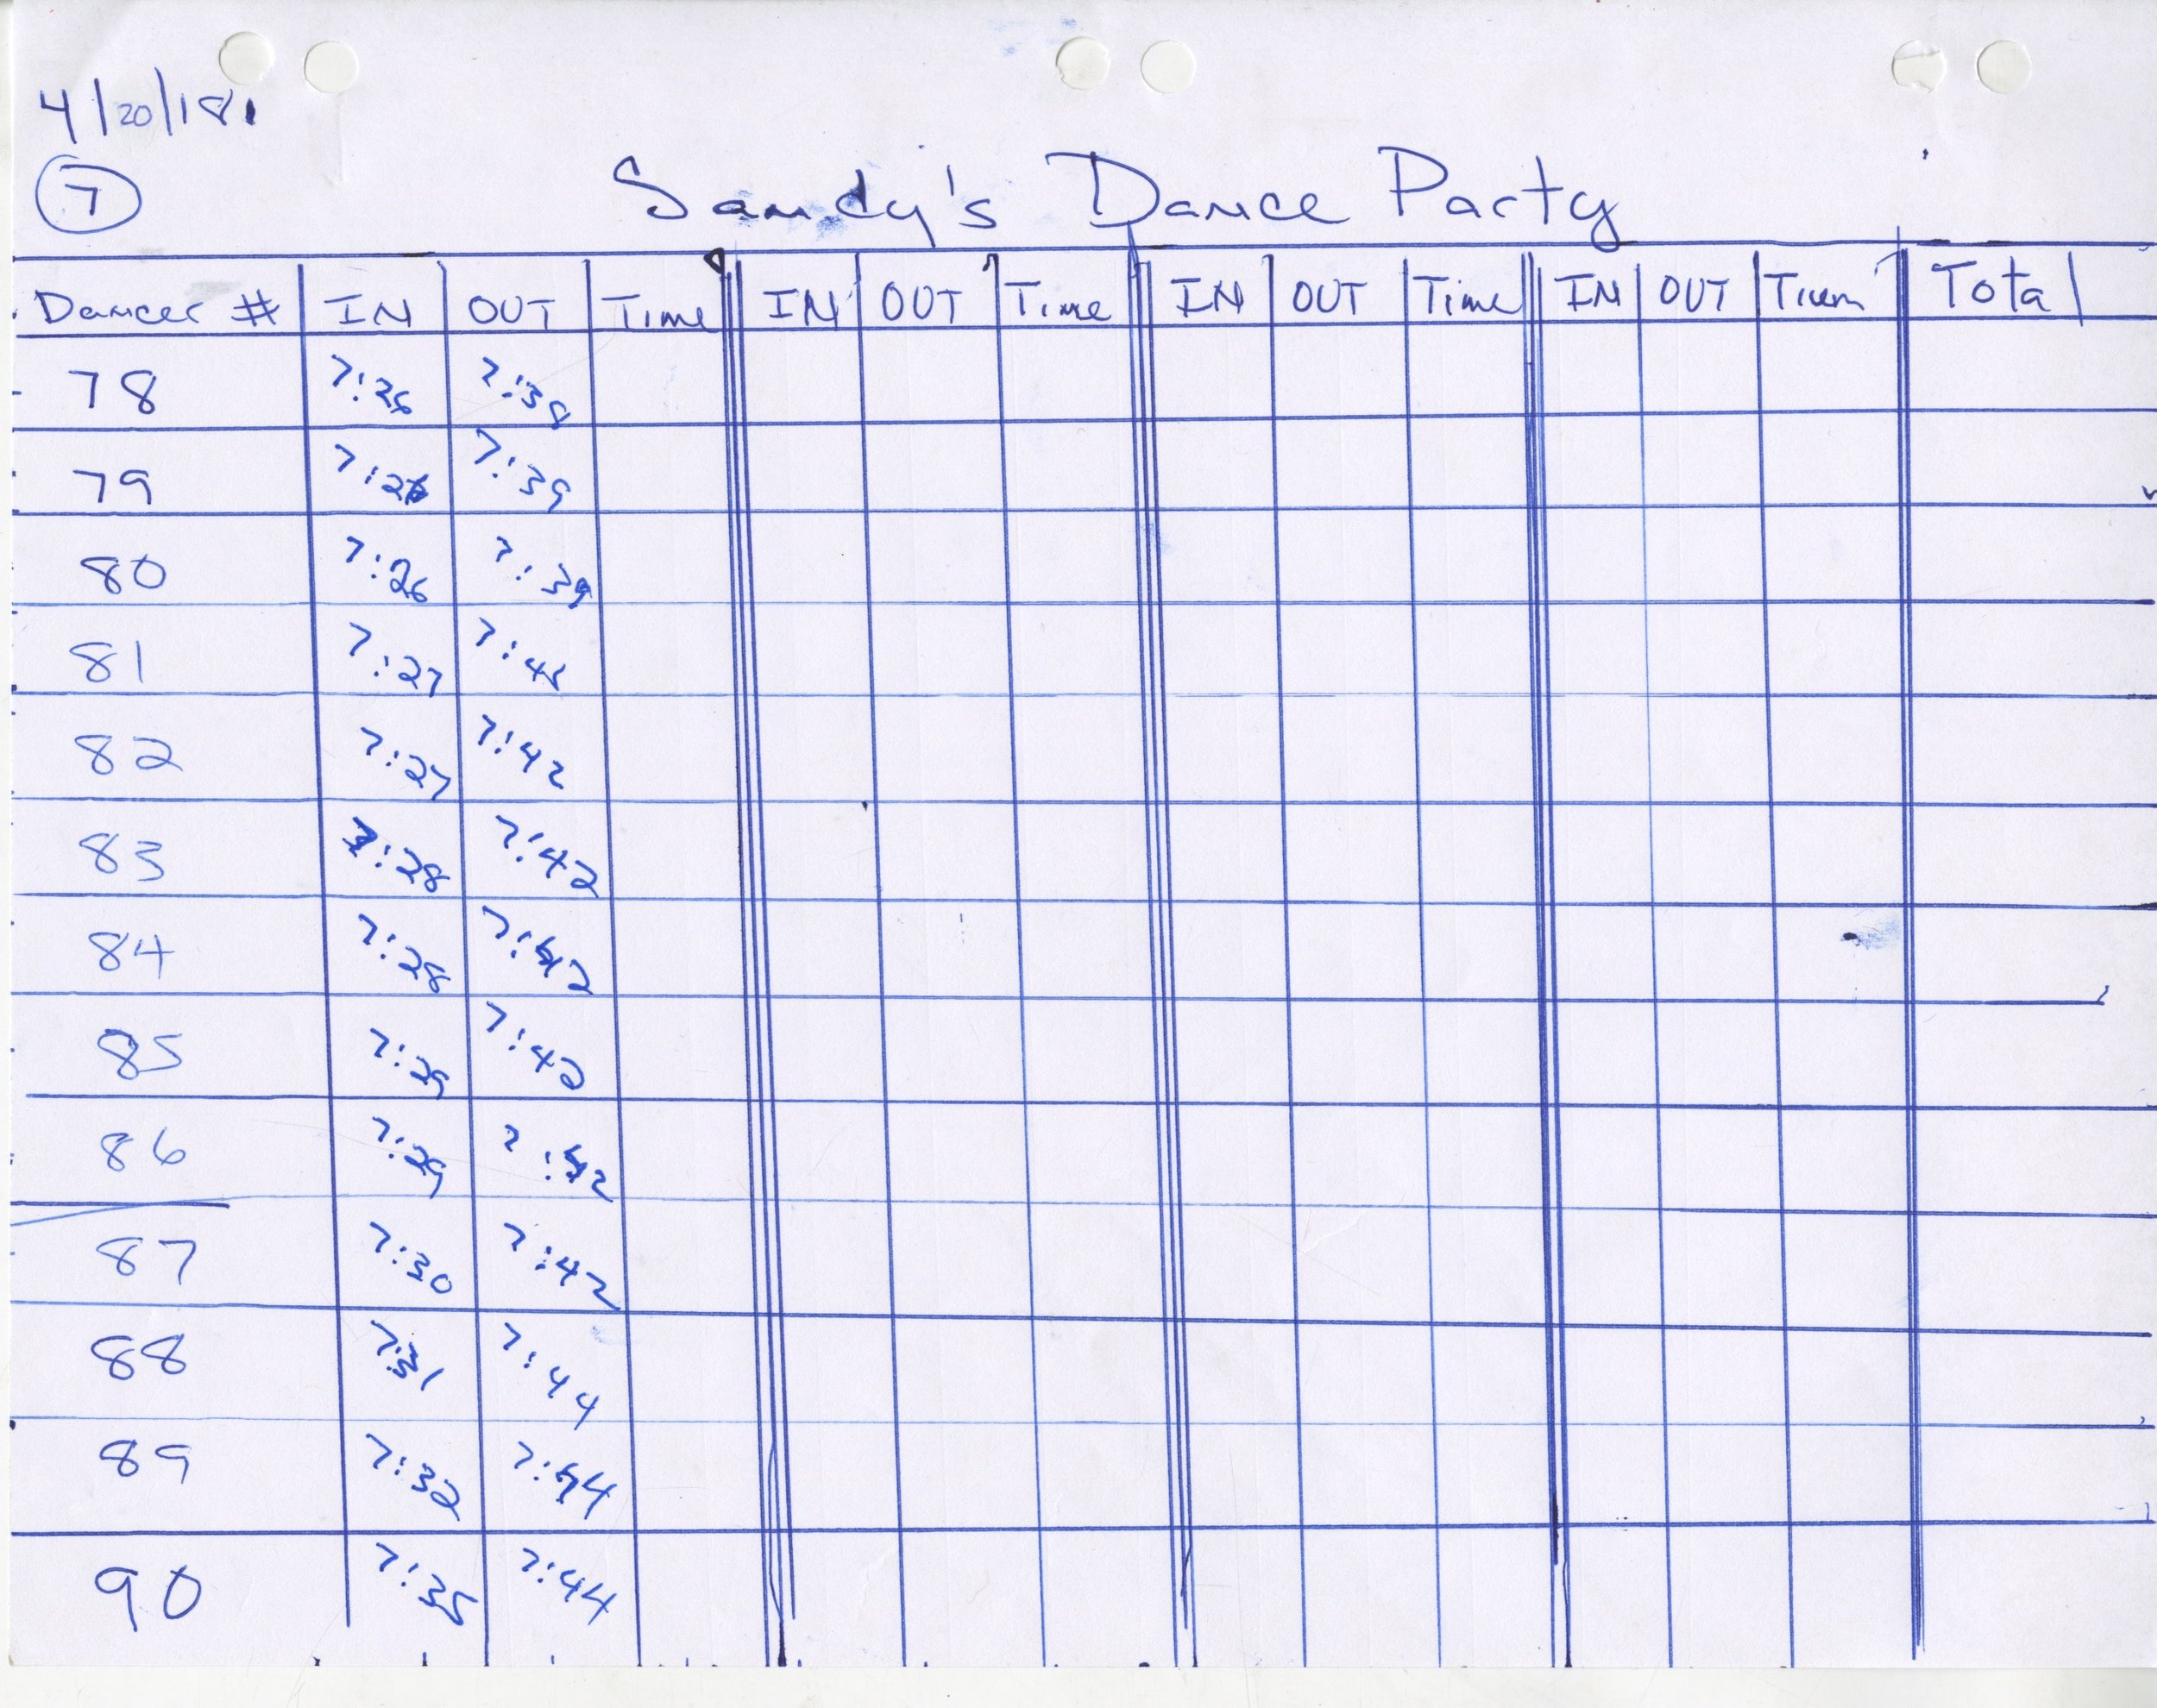 4/20/18
7
Sandy's Dance Party
Dancer # IN OUT Time IN OUT Time IN OUT Time IN OUT Tiem Total
78 7:26 7:38
79 7:26 7:39
80 7:26 7:39
81 7:27
82 7:27 7:42
83 7:28 7:42
84 7:28 7:42
85 7:29 7:42
86 7:29 7:42
87 7:30 7:42
88 7:31 7:44
89 7:32 7:44
90 7:35 7:44